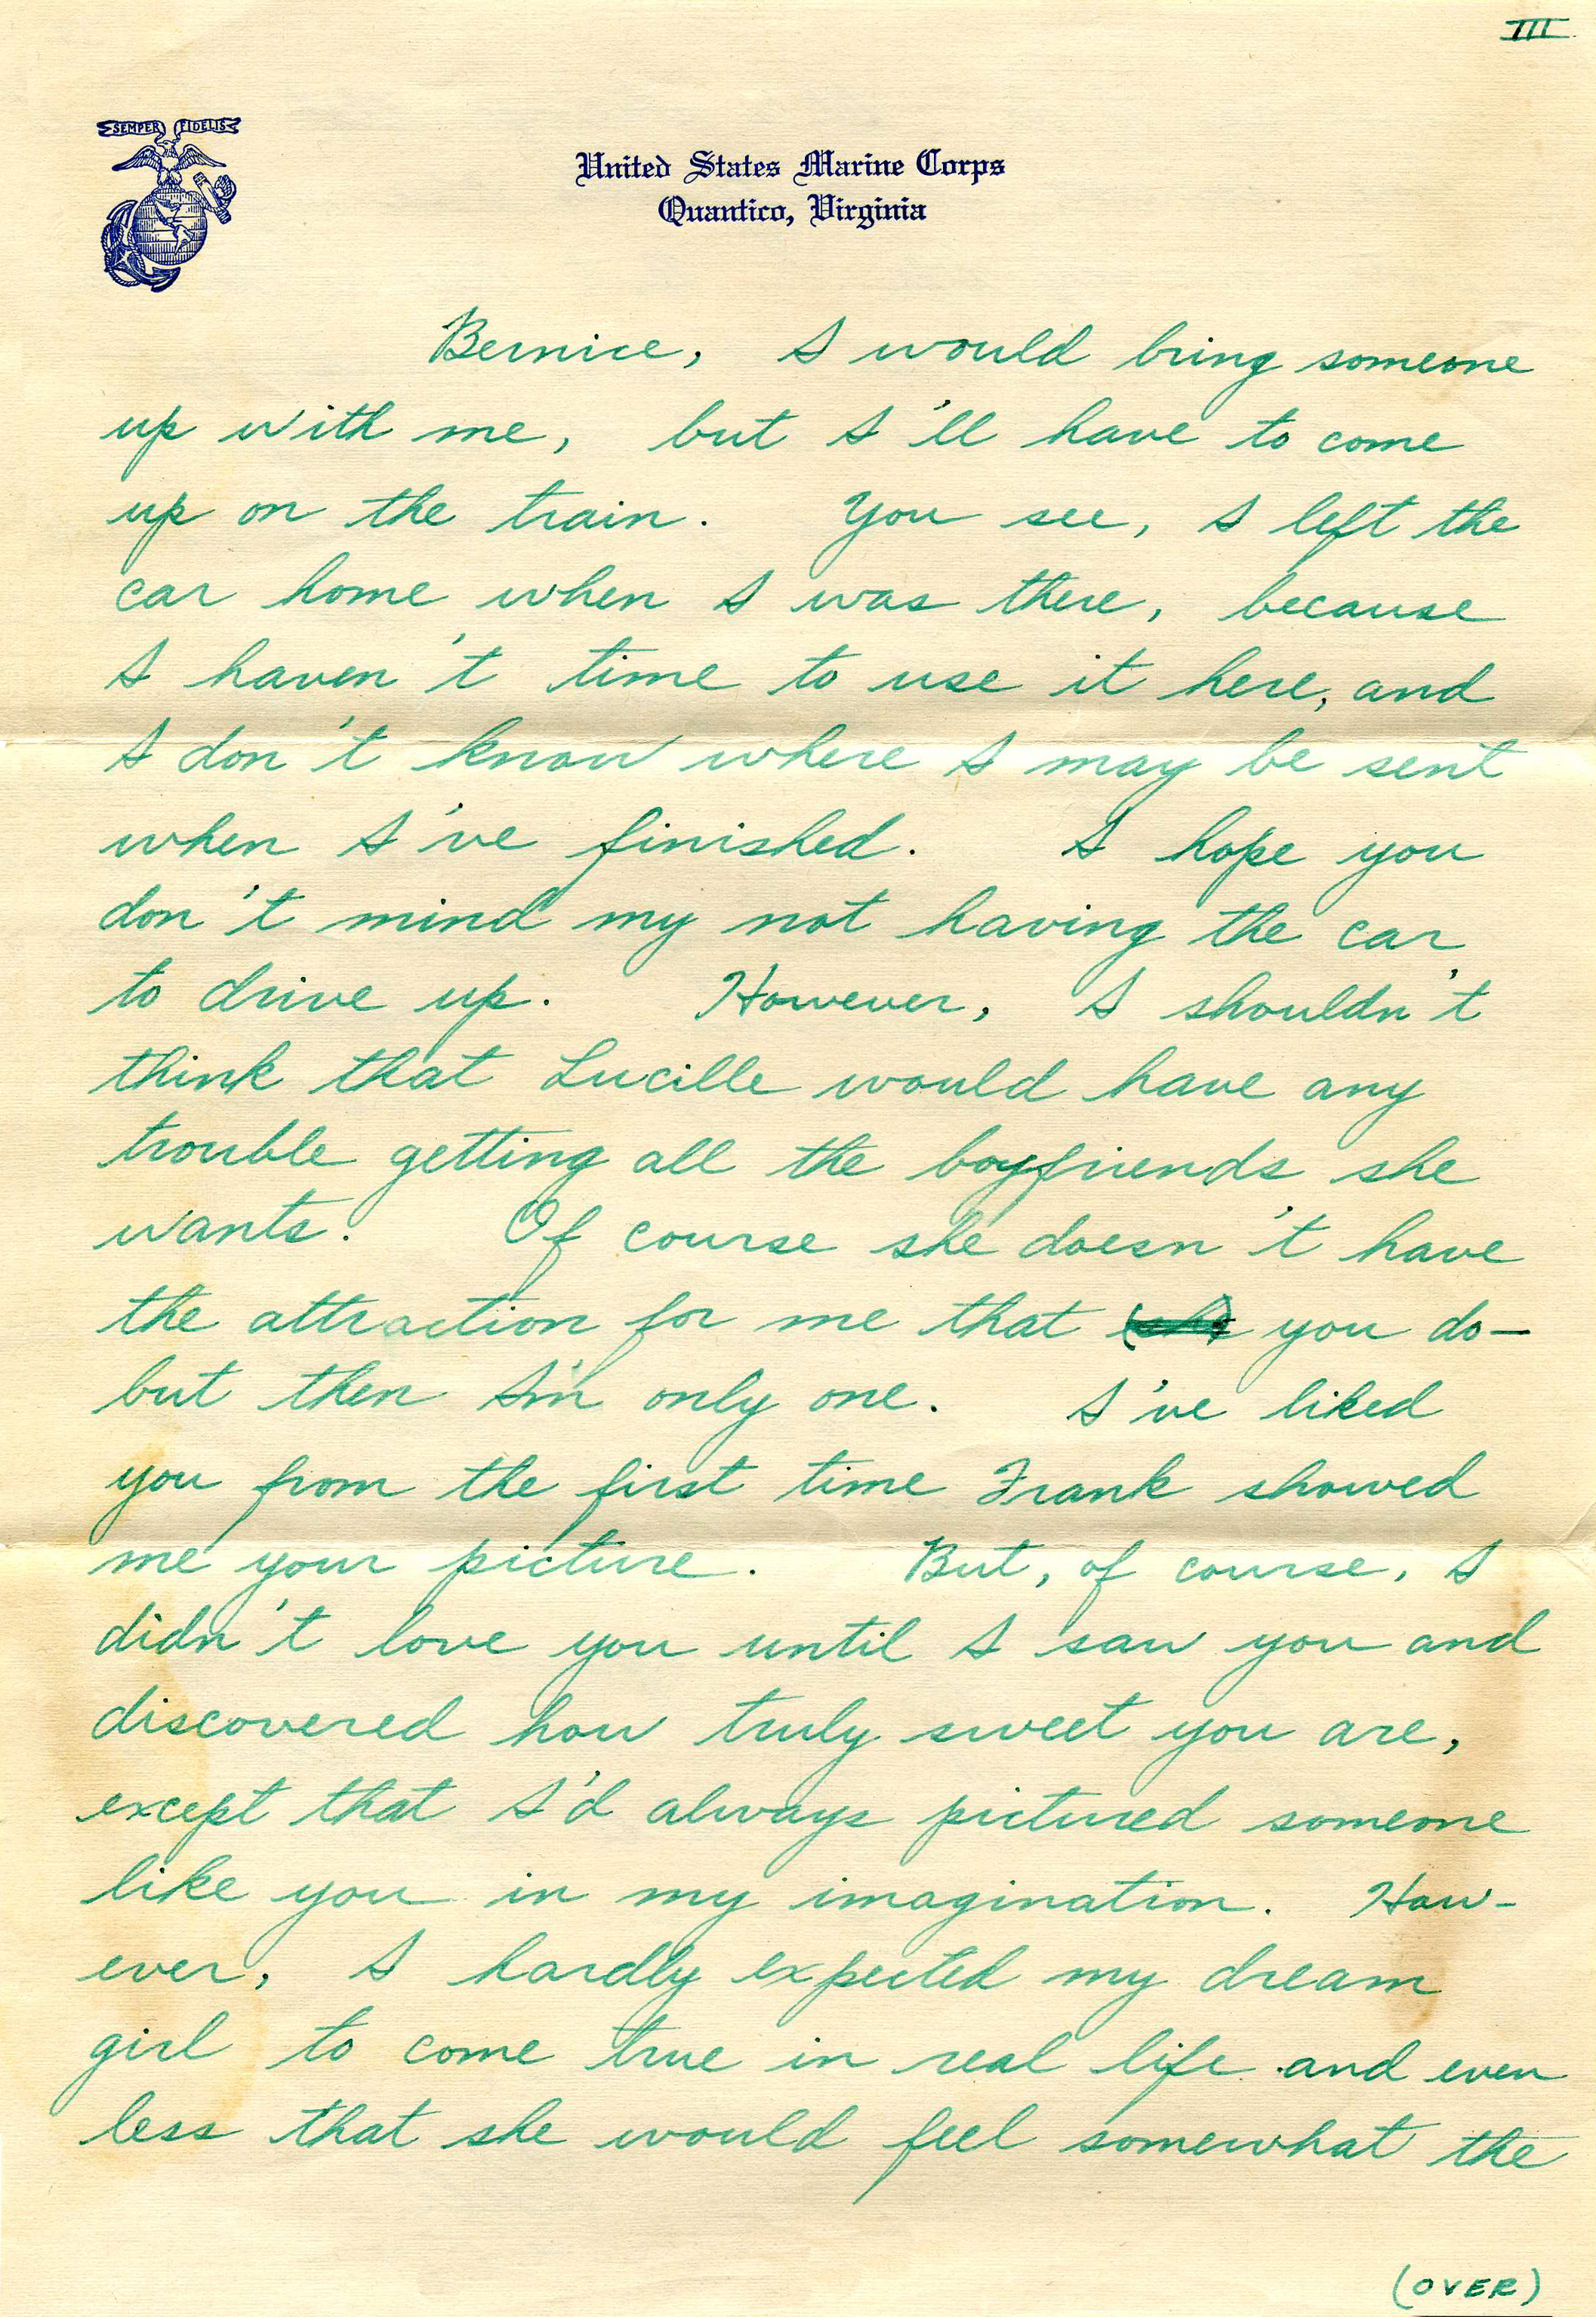 III
SEMPER FIDELIS
United States Marine Corps
Quantico, Virginia
Bernice, I would bring someone
up with me, but I'll have to come
up on the train. You see, I left the
car home when I was there, because
I haven't time to use it here, and
I don't know where I may be sent
when I've finished. I hope you
don't mind my not having the car
to drive up. However, I shouldn't
think that Lucille would have any
trouble getting all the boyfriends she
wants. Of course she doesn't have
the attraction for me that you do—
but then I'm only one. I've liked
you from the first time Frank showed
me your picture. But, of course, I
didn't love you until I saw you and
discovered how truly sweet you are,
except that I'd always pictured someone
like you in my imagination. How-
ever, I hardly expected my dream
girl to come true in real life and even
less that she would feel somewhat the
(OVER)